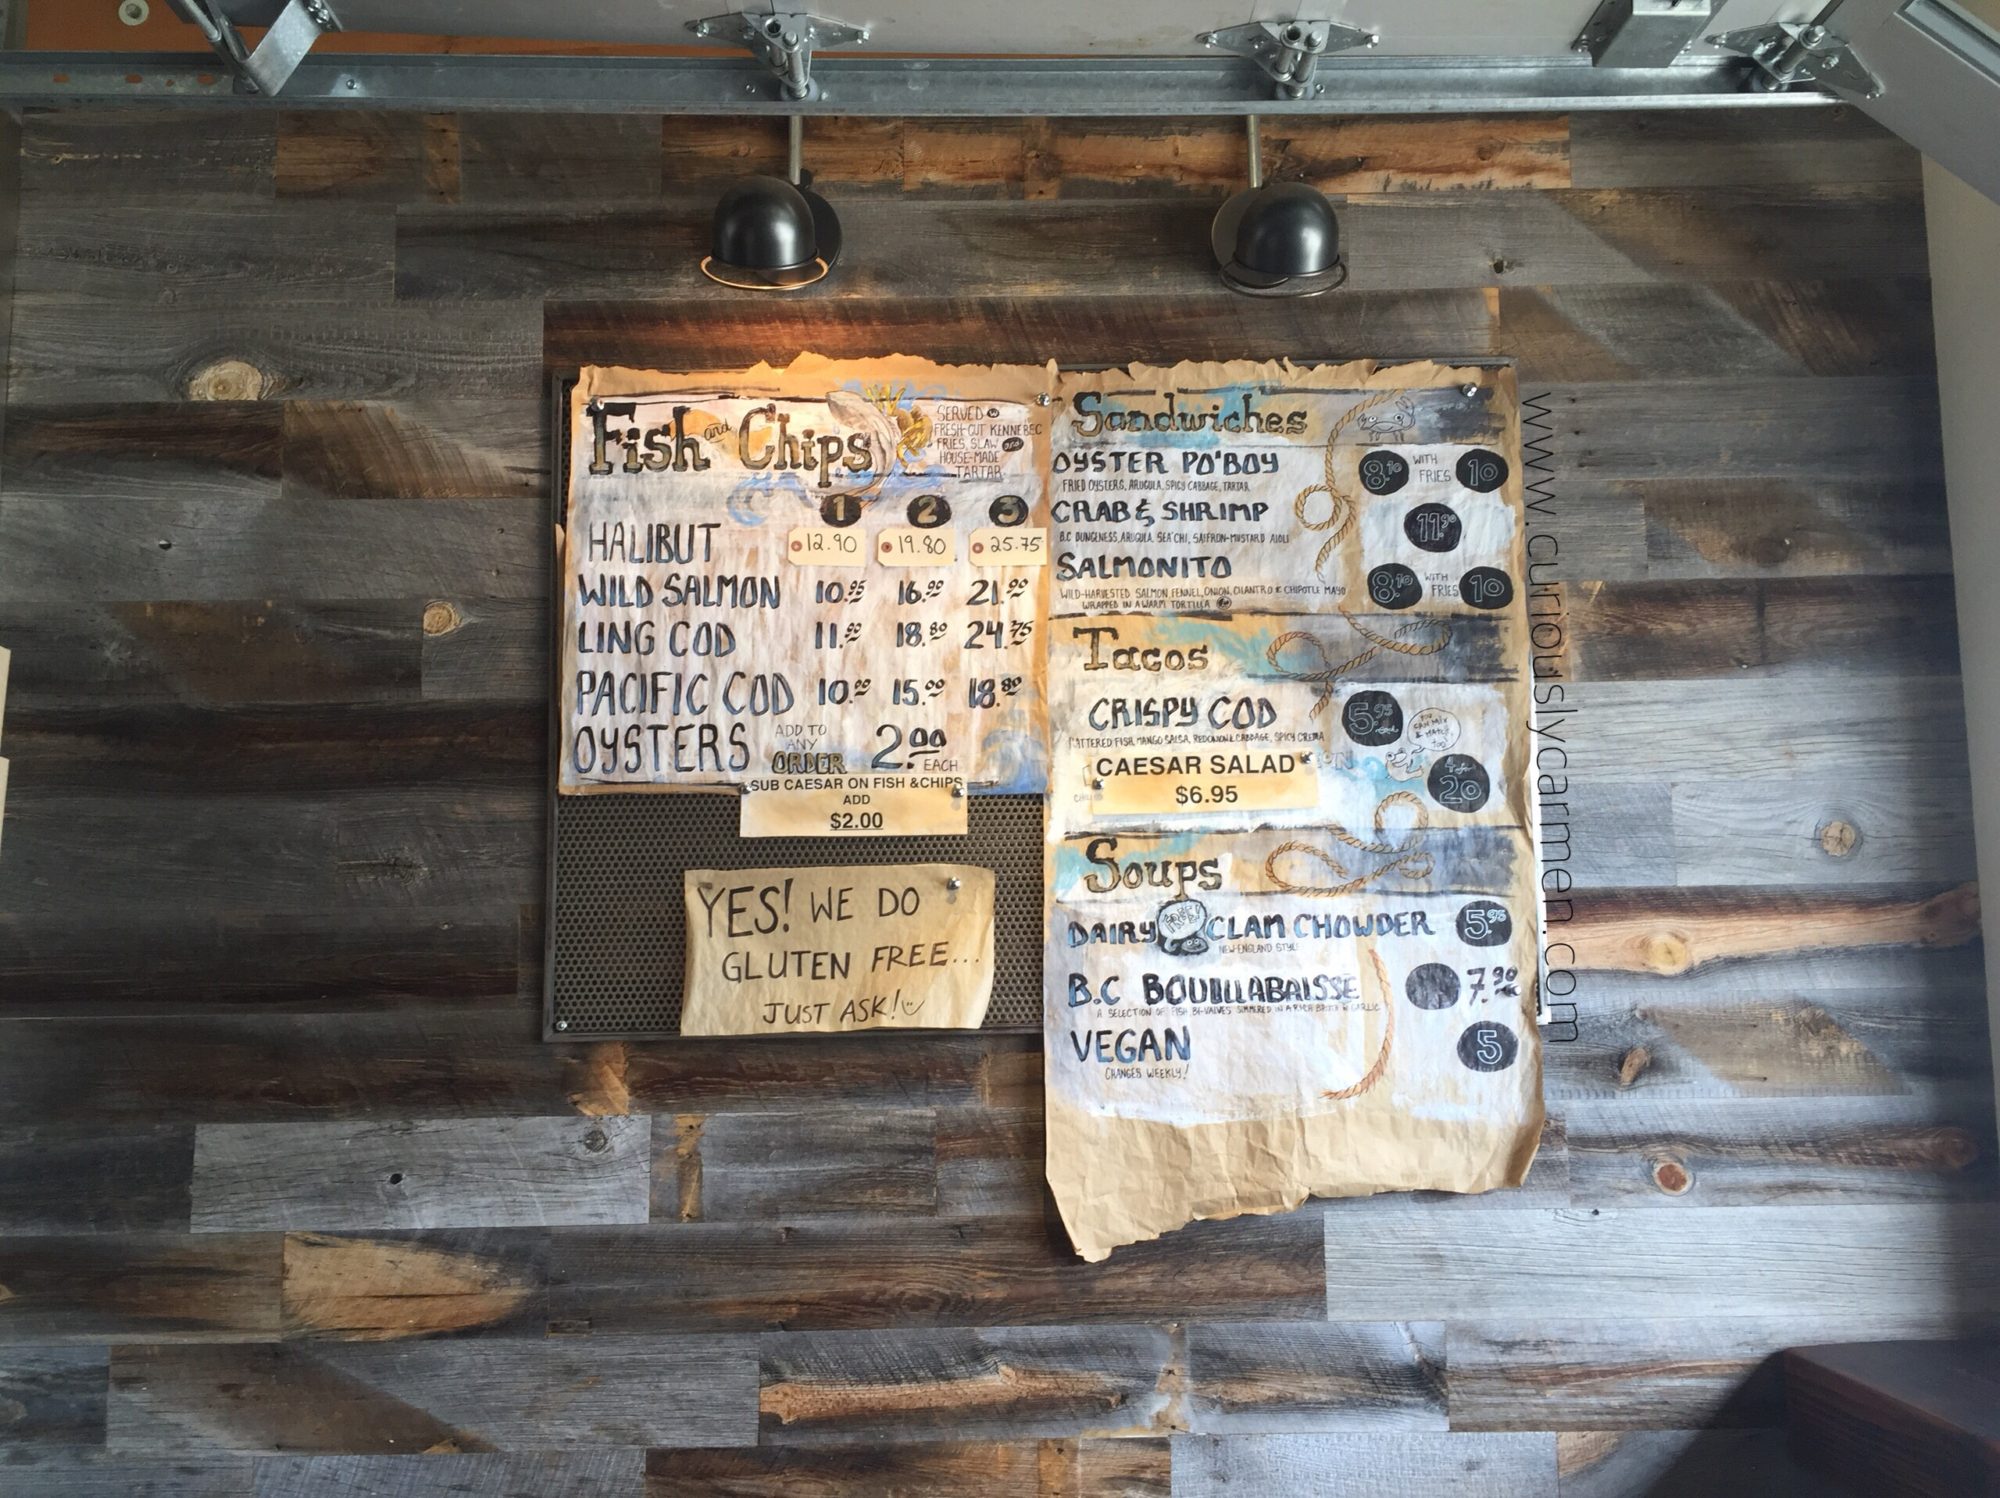 Fish and Chips
SERVED W
FRESH-CUT KENNEBEC
FRIES, SLAW and
HOUSE-MADE
TARTAR
1 2 3
HALIBUT 12.90 19.80 25.75
WILD SALMON 10.95 16.90 21.90
LING COD 11.90 18.80 24.75
PACIFIC COD 10.00 15.00 18.80
OYSTERS ADD TO ANY ORDER 2.00 EACH
SUB CAESAR ON FISH &CHIPS
ADD
$2.00
YES! WE DO
GLUTEN FREE...
JUST ASK!
Sandwiches
OYSTER PO'BOY 8.10 WITH FRIES 10
FRIED OYSTERS, ARUGULA, SPICY CABBAGE, TARTAR
CRAB & SHRIMP 11.90
B.C DUNGENESS, ARUGULA, SEA'CHI, SAFFRON-MUSTARD AIOLI
SALMONITO 8.10 WITH FRIES 10
WILD-HARVESTED SALMON FENNEL, ONION, CILANTRO & CHIPOTLE MAYO
WRAPPED IN A WARM TORTILLA
Tacos
CRISPY COD 5.95 each
BATTERED FISH, MANGO SALSA, RED ONION & CABBAGE, SPICY CREMA
YOU CAN MIX & MATCH TOO!
CAESAR SALAD
$6.95
4 for 20
Soups
DAIRY FREE! CLAM CHOWDER 5.95
NEW-ENGLAND STYLE
B.C BOUILLABAISSE 7.90
A SELECTION OF FISH BI-VALVES SIMMERED IN A RICH BROTH W GARLIC
VEGAN 5
CHANGES WEEKLY!
www.curiouslycarmen.com